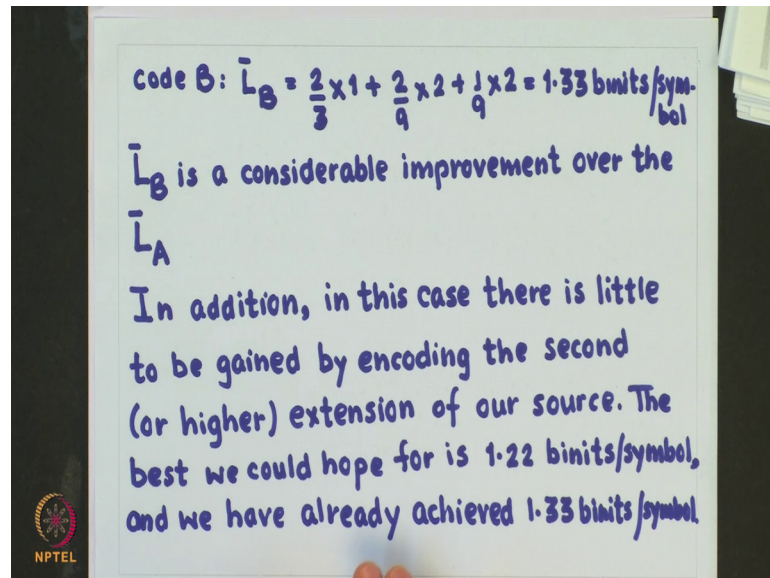 code B: L̄_B = 2/3 x 1 + 2/9 x 2 + 1/9 x 2 = 1.33 binits/sym-
bol
L̄_B is a considerable improvement over the
L̄_A
In addition, in this case there is little
to be gained by encoding the second
(or higher) extension of our source. The
best we could hope for is 1.22 binits/symbol,
and we have already achieved 1.33 binits/symbol.
NPTEL